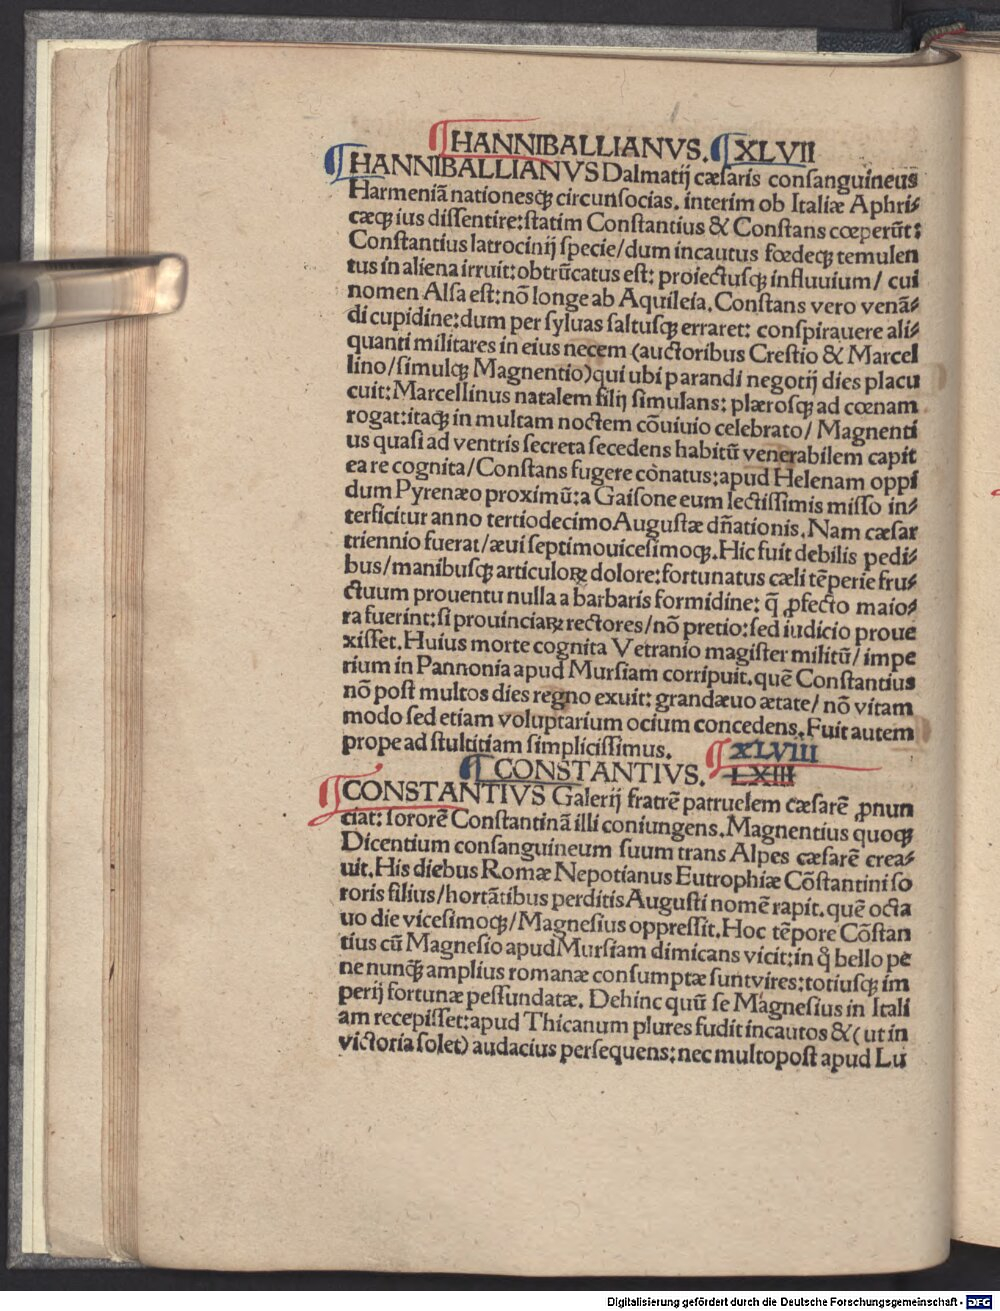 ¶HANNIBALLIANVS. ¶XLVII
¶HANNIBALLIANVS Dalmatij cæſaris conſanguineus
Harmeniā nationesqꝫ circunſocias. interim ob Italiæ Aphri⸗
cæqꝫ ius diſſentire:ſtatim Conſtantius & Conſtans cœperūt:
Conſtantius latrocinij ſpecie/dum incautus fœdeqꝫ temulen
tus in aliena irruit:obtrūcatus eſt: proiectuſqꝫ influuium/ cui
nomen Alſa eſt:nō longe ab Aquileia. Conſtans vero venā⸗
di cupidine:dum per ſyluas ſaltuſqꝫ erraret: conſpirauere ali⸗
quanti militares in eius necem (auctoribus Creſtio & Marcel
lino/ſimulqꝫ Magnentio)qui ubi parandi negotij dies placu
cuit:Marcellinus natalem filij ſimulans: plæroſqꝫ ad cœnam
rogat:itaqꝫ in multam noctem cōuiuio celebrato/ Magnenti
us quaſi ad ventris ſecreta ſecedens habitū venerabilem capit
ea re cognita/Conſtans fugere cōnatus:apud Helenam oppi
dum Pyrenæo proximū:a Gaiſone eum lectiſſimis miſſo in⸗
terficitur anno tertiodecimo Auguſtæ dn̄ationis. Nam cæſar
triennio fuerat/æui ſeptimouiceſimoqꝫ. Hic fuit debilis pedi⸗
bus/manibuſqꝫ articuloꝝ dolore:fortunatus cæli tēperie fru⸗
ctuum prouentu nulla a barbaris formidine: q̄ ꝓfecto maio⸗
ra fuerint:ſi prouinciaꝝ rectores/nō pretio:ſed iudicio proue
xiſſet. Huius morte cognita Vetranio magiſter militū/ impe
rium in Pannonia apud Murſiam corripuit. quē Conſtantius
nō poſt multos dies regno exuit: grandæuo ætate/ nō vitam
modo ſed etiam voluptarium ocium concedens. Fuit autem
prope ad ſtultitiam ſimpliciſſimus. ¶XLVIII
¶ CONSTANTIVS. LXIII
¶CONSTANTIVS Galerij fratrē patruelem cæſarē ꝓnun
ciat: ſororē Conſtantinā illi coniungens. Magnentius quoqꝫ
Dicentium conſanguineum ſuum trans Alpes cæſarē crea⸗
uit. His diebus Romæ Nepotianus Eutrophiæ Cōſtantini ſo
roris filius/hortātibus perditis Auguſti nomē rapit. quē octa
uo die viceſimoqꝫ/Magneſius oppreſſit. Hoc tēpore Cōſtan
tius cū Magneſio apud Murſiam dimicans vicit:in q̊ bello pe
ne nunqꝫ̄ amplius romanæ conſumptæ ſunt vires:totiuſqꝫ im
perij fortunæ peſſundatæ. Dehinc quū ſe Magneſius in Itali
am recepiſſet:apud Thicanum plures fudit incautos &( ut in
victoria ſolet) audacius perſequens:nec multo poſt apud Lu
Digitalisierung gefördert durch die Deutsche Forschungsgemeinschaft - DFG